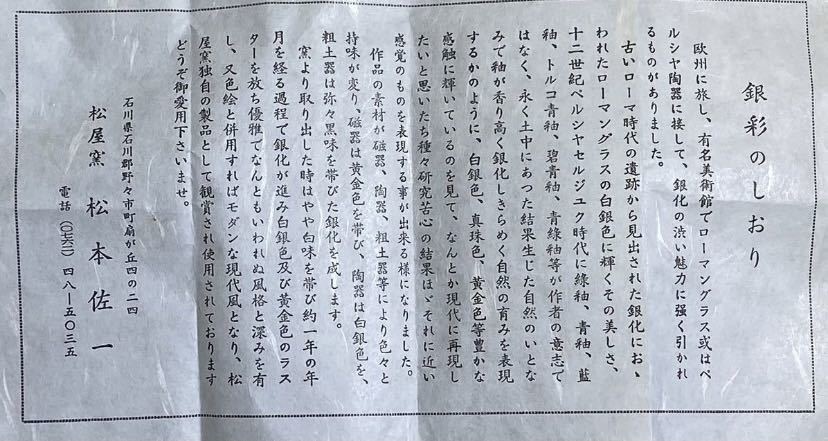 銀彩のしおり
欧州に旅し、有名美術館でローマングラス或はペ
ルシヤ陶器に接して、銀化の渋い魅力に強く引かれ
るものがありました。
古いローマ時代の遺跡から見出された銀化におゝ
われたローマングラスの白銀色に輝くその美しさ、
十二世紀ペルシヤセルジュク時代に緑釉、青釉、藍
釉、トルコ青釉、碧青釉、青緑釉等が作者の意志で
はなく、永く土中にあつた結果生じた自然のいとな
みで釉が香り高く銀化しきらめく自然の育みを表現
するかのように、白銀色、真珠色、黄金色等豊かな
感触に輝いているのを見て、なんとか現代に再現し
たいと思いたち種々研究苦心の結果ほゞそれに近い
感覚のものを表現する事が出来る様になりました。
作品の素材が磁器、陶器、粗土器等により色々と
持味が変り、磁器は黄金色を帯び、陶器は白銀色を、
粗土器は弥々黒味を帯びた銀化を成します。
窯より取り出した時はやや白味を帯び約一年の年
月を経る過程で銀化が進み白銀色及び黄金色のラス
ターを放ち優雅でなんともいわれぬ風格と深みを有
し、又色絵と併用すればモダンな現代風となり、松
屋窯独自の製品として観賞され使用されております
どうぞ御愛用下さいませ。
石川県石川郡野々市町扇が丘四の二四
松屋窯 松本佐一
電話(〇七六二)四八―五〇三五